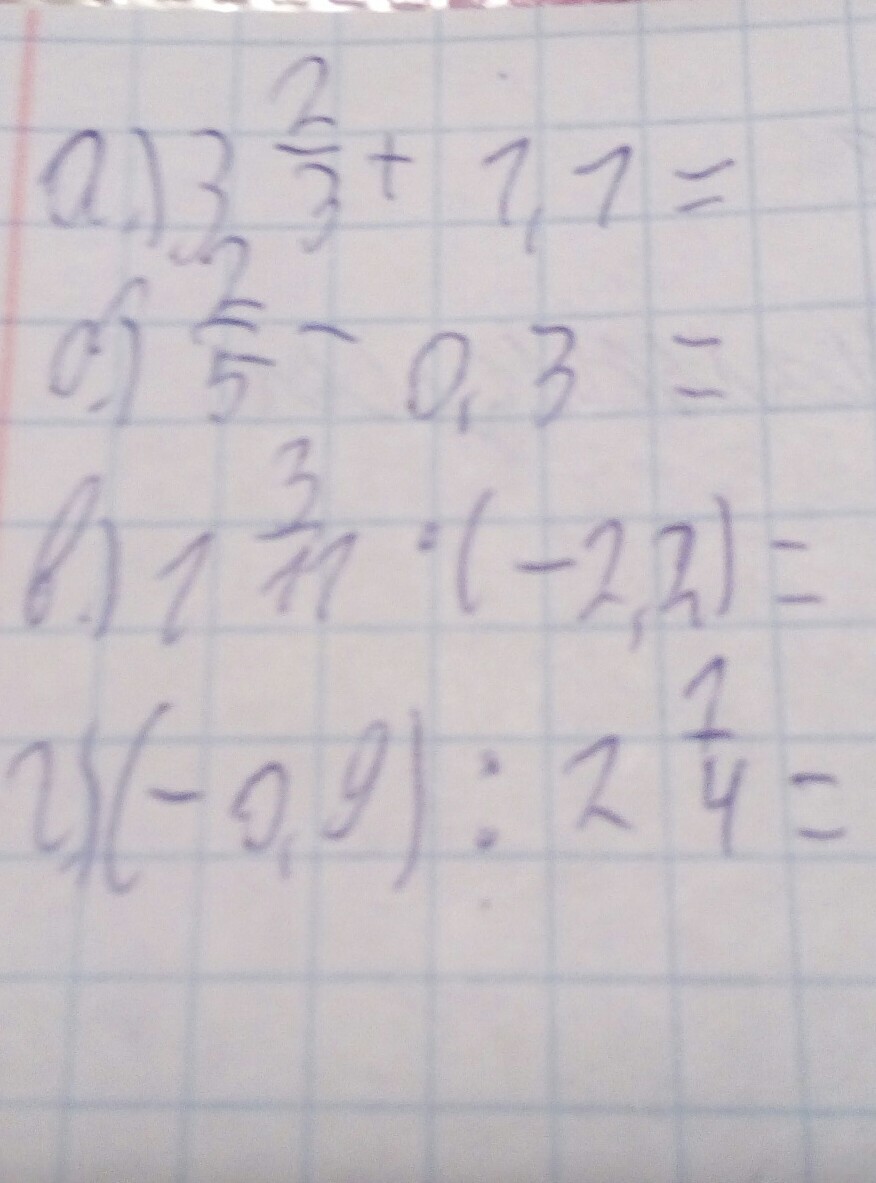 а.) 3 2/3 + 1,1 =
б.) 2/5 - 0,3 =
в.) 1 3/11 · (-2,2) =
г.) (-0,9) : 2 1/4 =